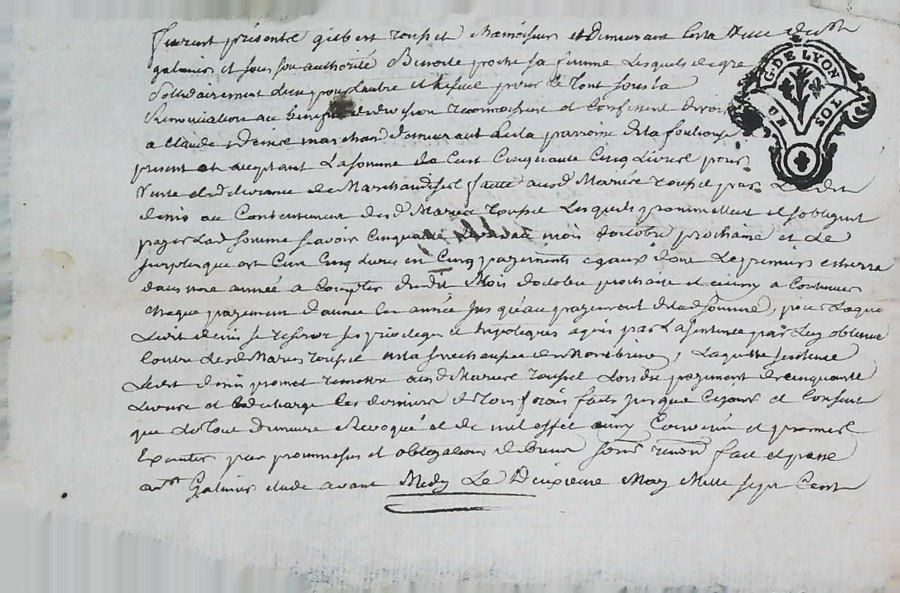 Furent présente gilbert roussel et Demeurant en la Ville de St
galmier et sous son authorité Benoite sa femme Lesquels de gre
Solidairement L'un pour L'autre et pour le Tout sous la
Renonciation au benefice de division reconnoissent et Confessent devoir
a Claude Denis marchand demeurant en la parroisse de la fouliouse
present et acceptant La somme de Cent Cinquante Cinq Livres pour
Vente et delivrance de Marchandises faitte aud Mariés roussel par Ledit
denis au Contentement desd Mariés roussel Lesquels promettent et s'obligent
payer Lad somme scavoir Cinquante mois d'octobre prochain et Le
surplus que est Cent Cinq Livres en Cinq payements egaux dont Le premier
dans une année a Compter dudit Mois d'octobre prochain et ainsy a Continuer
chaque payement d'année en année jusqu'au payement de lad somme, pour Laque
Ledit denis se reserve ses privileges et hipoteques acquis par La sentence par Luy obtenue
Contre Lesd Mariés roussel en la de Montbrison, Laquelle sentence
Ledit denis promet remettre aud Mariés roussel Lors du payement de cinquante
Livres et decharge Les derniers de Tous frais faits jusque Ce jour et Consent
que Le Tout demeure Revoqué et de nul effet ainsy Convenu et promis
Executer par promesses et obligations de biens soum renon fait et passé
aud St Galmier etude avant Midy Le Deuxieme May Mille Sept Cent
G. DE LYON
UN SOL